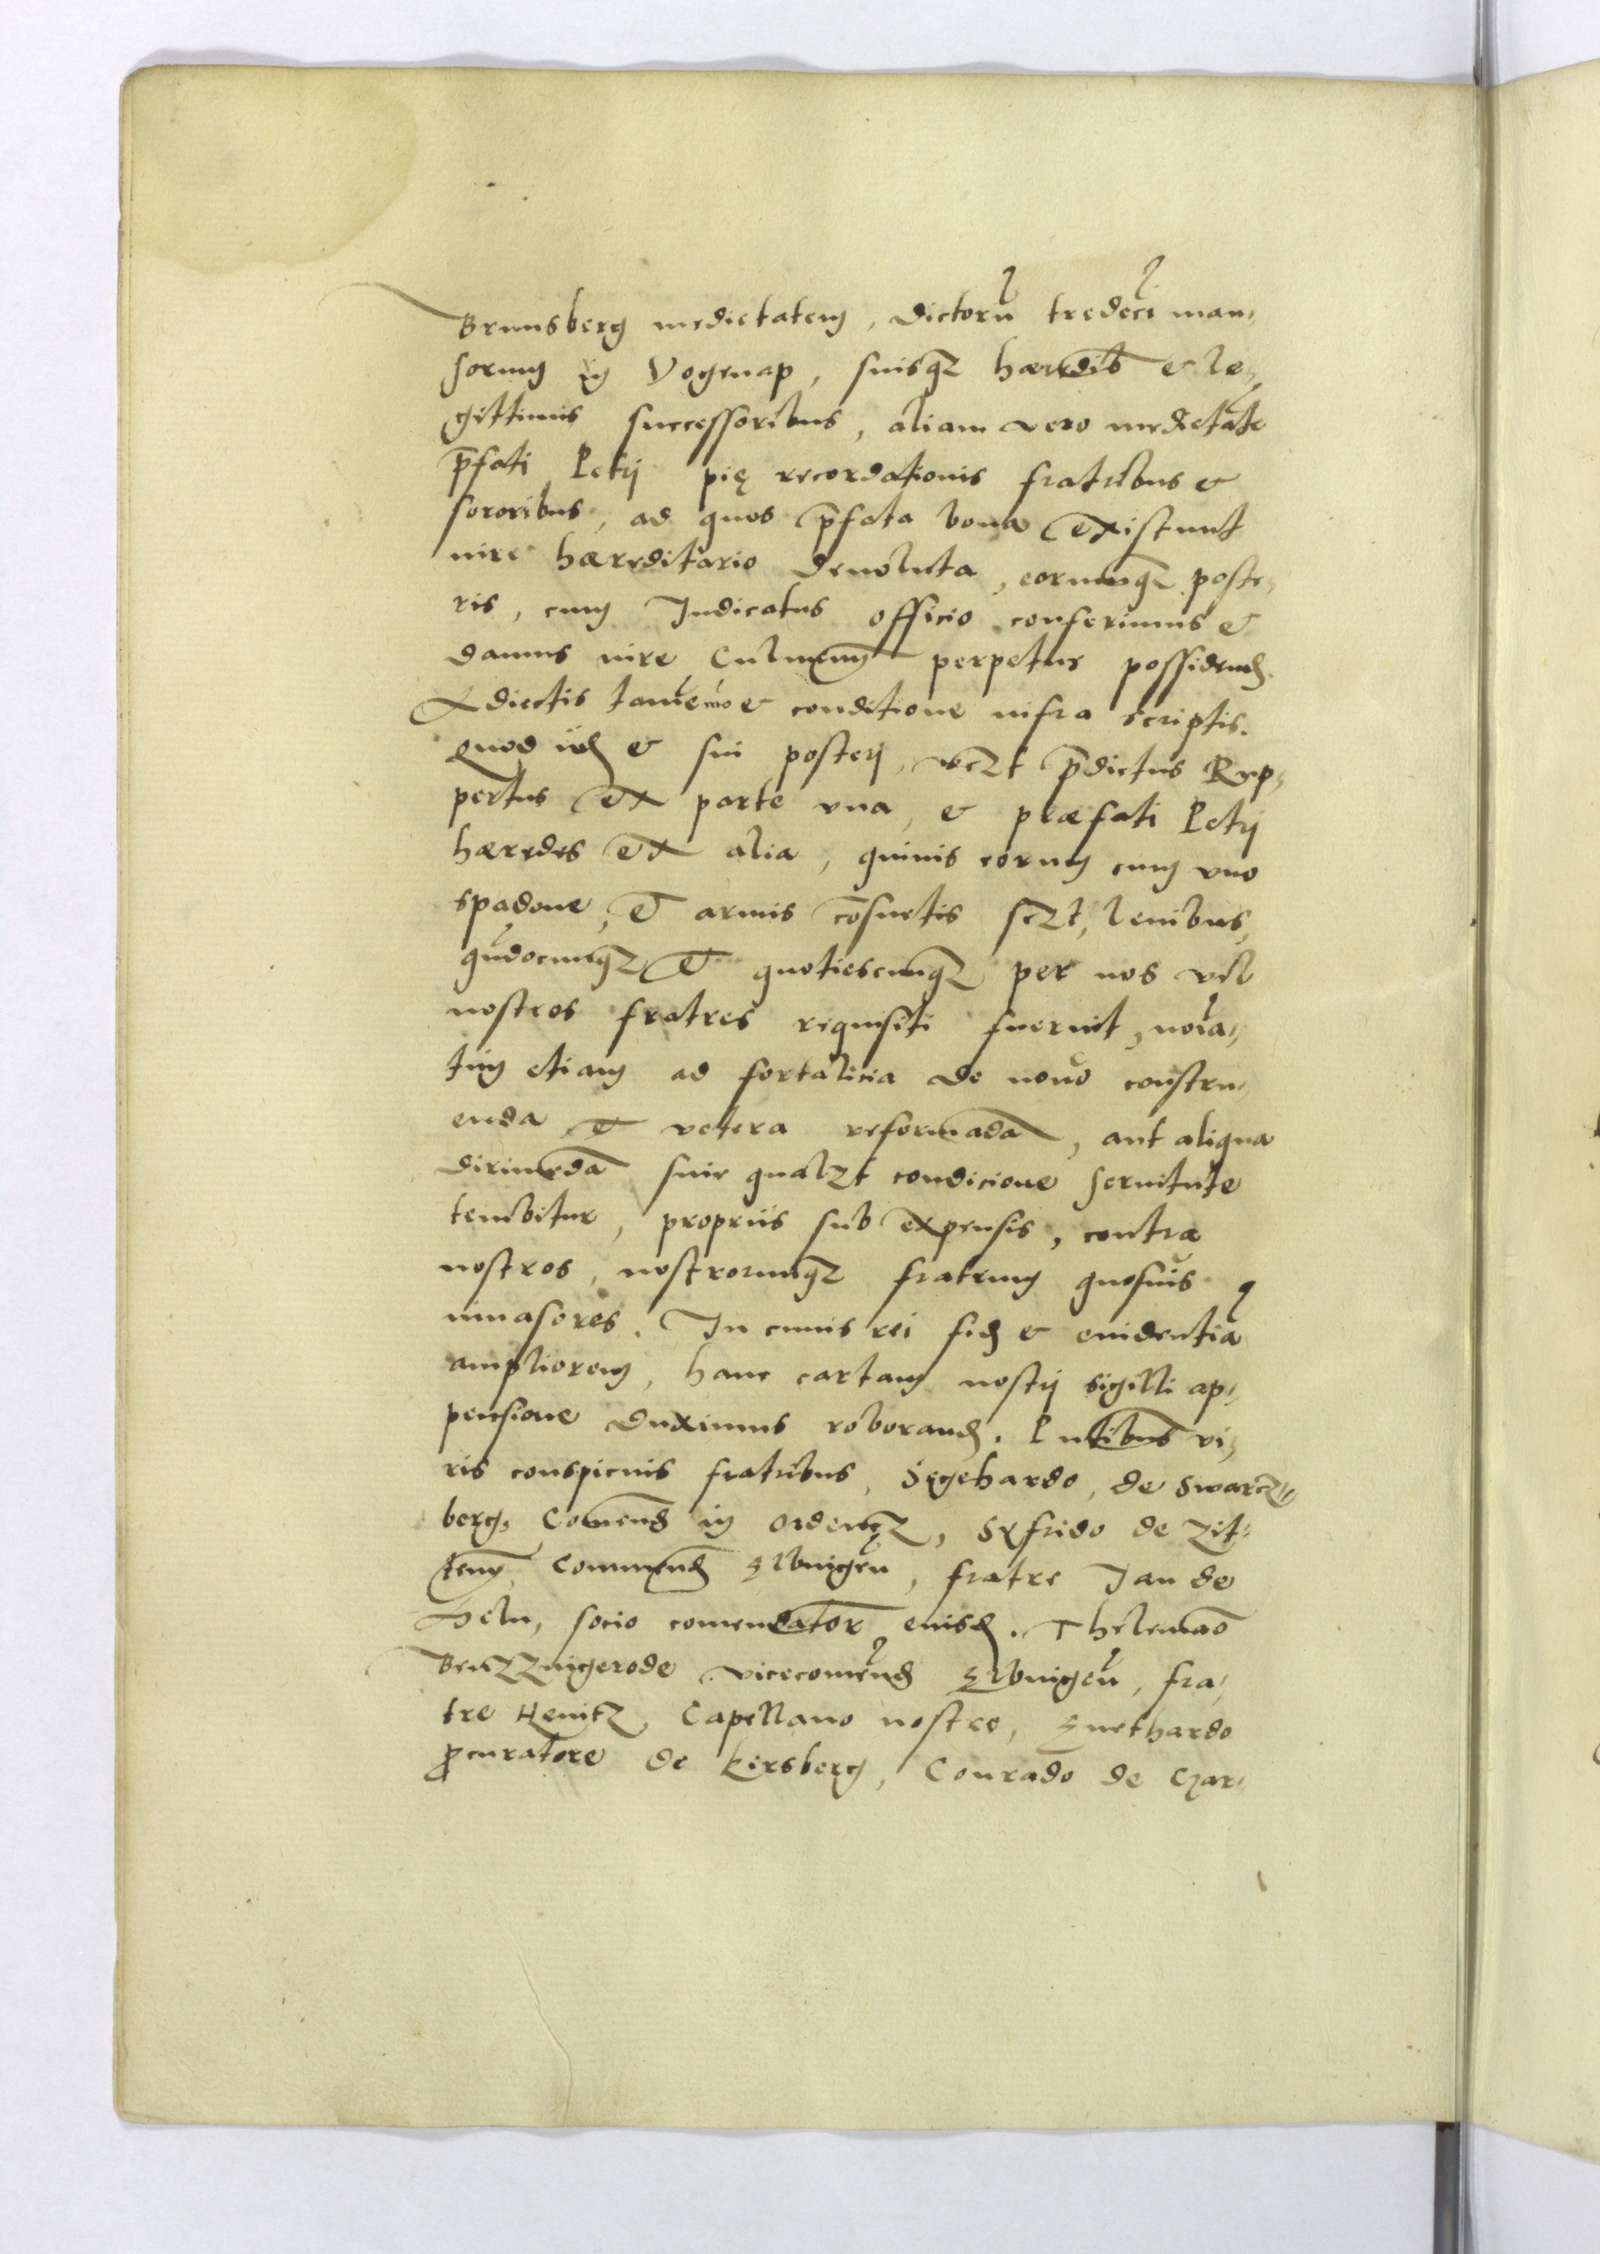 Brunsberg medietatem, dictorū tredecī man⸗
sorum in Vogenap, suisqꝫ hæredib̄ & le⸗
gittimis successoribus, aliam vero medietatē
p̄fati Petrj pię recordationis fratribus &
sororibus, ad quos p̄fata bona existunt
iure hæreditario deuoluta, eorumqꝫ poste⸗
ris, cum Judicatus officio conferimus &
damus iure Culmen̄ perpetue possidend.
Adiectis tamē & conditione infra scriptis.
Quod ijd & sui posterj, vꝫt p̄dictus Rup⸗
pertus ex parte vna, & præfati Petrj
hæredes ex alia, quiuis eorum cum vno
spadone, & armis cōsuetis scꝫt, leuibus,
qn̄docunqꝫ & quotiescunqꝫ per nos vel
nostros fratres requisiti fuerint, noīa⸗
tim etiam ad fortalicia de nouo constru⸗
enda & vetera reformādā, aut aliqua
dirimēdā siue qualꝫt condicione seruitute
tenebitur, propriis sub expensis, contra
nostros, nostrorumqꝫ fratrum quosuis
inuasores. In cuius rei fid & euidentiā
ampliorem, hanc cartam nostrj sigilli ap⸗
pensione duximus roborand. Pntibus vi⸗
ris conspicuis fratribus, Segehardo, de Swarcz⸗
berg, Comend in , Syfrido de Zit⸗
ten, Commend Elbingēn, fratre Jan de
 socio comendator eiusd. Thelemāo
 vicecomēnd Elbingēn, fra⸗
tre Heintꝫ, Capellano nostro, Euerhardo
ꝓcuratore de Kersberg, Conrado de Czar⸗